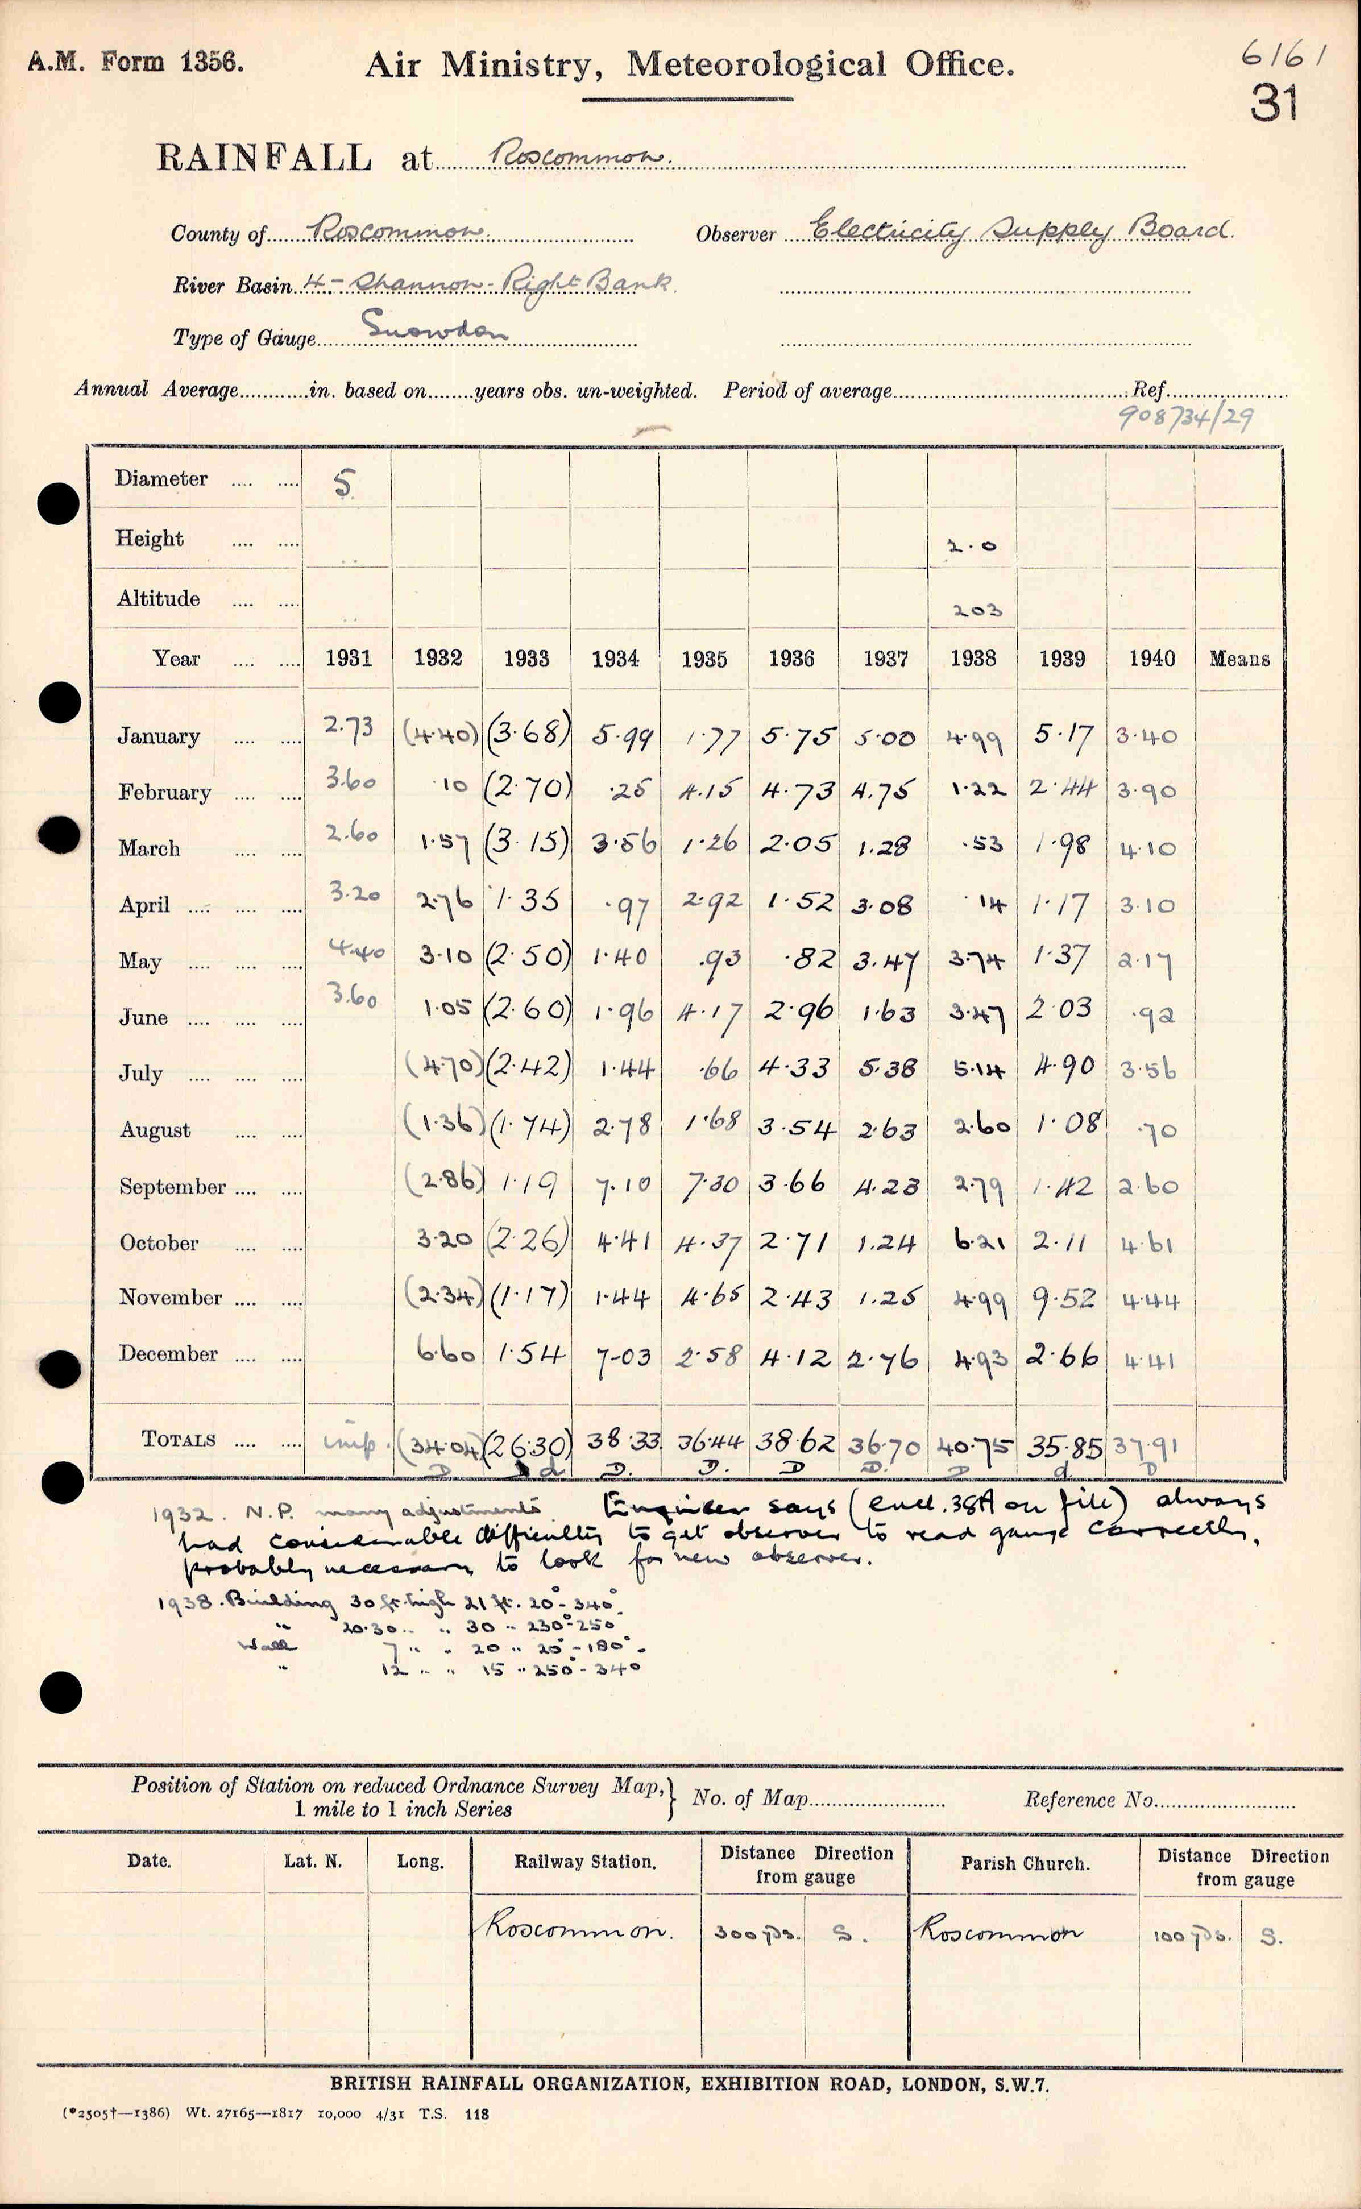 A.M. Form 1356. Air Ministry, Meteorological Office. 6161
31
RAINFALL at Roscommon.
County of Roscommon. Observer Electricity Supply Board.
River Basin 4 - Shannon - Right Bank.
Type of Gauge Snowdon
Annual Average............in. based on........years obs. un-weighted. Period of average............Ref............
908734/29
Diameter .... .... 5
Height .... .... 2.0
Altitude .... .... 203
Year .... .... 1931 1932 1933 1934 1935 1936 1937 1938 1939 1940 Means
January .... .... 2.73 (4.40) (3.68) 5.99 1.77 5.75 5.00 4.99 5.17 3.40
February .... .... 3.60 .10 (2.70) .25 4.15 4.73 4.75 1.22 2.44 3.90
March .... .... 2.60 1.57 (3.15) 3.56 1.26 2.05 1.28 .53 1.98 4.10
April .... .... .... 3.20 2.76 1.35 .97 2.92 1.52 3.08 .14 1.17 3.10
May .... .... .... 4.40 3.10 (2.50) 1.40 .93 .82 3.47 3.74 1.37 2.17
June .... .... .... 3.60 1.05 (2.60) 1.96 4.17 2.96 1.63 3.47 2.03 .92
July .... .... .... (4.70) (2.42) 1.44 .66 4.33 5.38 5.14 4.90 3.56
August .... .... (1.36) (1.74) 2.78 1.68 3.54 2.63 2.60 1.08 .70
September .... .... (2.86) 1.19 7.10 7.30 3.66 4.23 2.79 1.42 2.60
October .... .... 3.20 (2.26) 4.41 4.37 2.71 1.24 6.21 2.11 4.61
November .... .... (2.34) (1.17) 1.44 4.65 2.43 1.25 4.99 9.52 4.44
December .... .... 6.60 1.54 7-03 2.58 4.12 2.76 4.93 2.66 4.41
TOTALS .... .... imp. (34.04) (26.30) 38.33 36.44 38.62 36.70 40.75 35.85 37.91
D. d D. D. D D. D d D
1932. N.P. many adjustments. Engineer says (encl. 38A on file) always
had considerable difficulty to get observer to read gauge correctly,
probably necessary to look for new observer.
1938. Building 30 ft. high 21 ft. 20°- 340°
" 20.30 " " 30 " 230°-250°
Wall 7 " " 20 " 20°-180°.
" 12 " " 15 " 250°- 340
Position of Station on reduced Ordnance Survey Map, } No. of Map............ Reference No............
1 mile to 1 inch Series
Date. Lat. N. Long. Railway Station. Distance Direction from gauge Parish Church. Distance Direction from gauge
Roscommon. 300 yds. S. Roscommon 100 yds. S.
BRITISH RAINFALL ORGANIZATION, EXHIBITION ROAD, LONDON, S.W.7.
(*2505†—1386) Wt. 27165—1817 10,000 4/31 T.S. 118